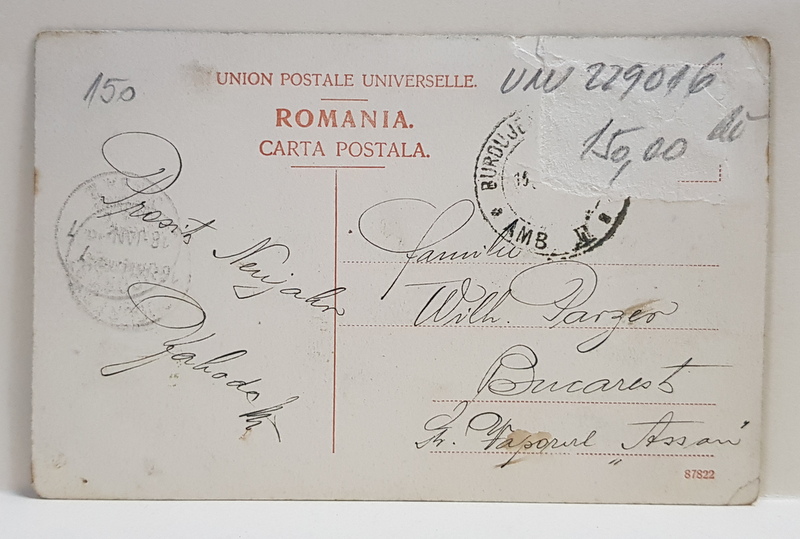 150
UNION POSTALE UNIVERSELLE.
ROMANIA.
CARTA POSTALA.
150,00
BURDUJE
AMB
Prosit
Neujahr
Familie
Wilh. Parzer
Bucarest
Str. Vaporul „Assan"
87822